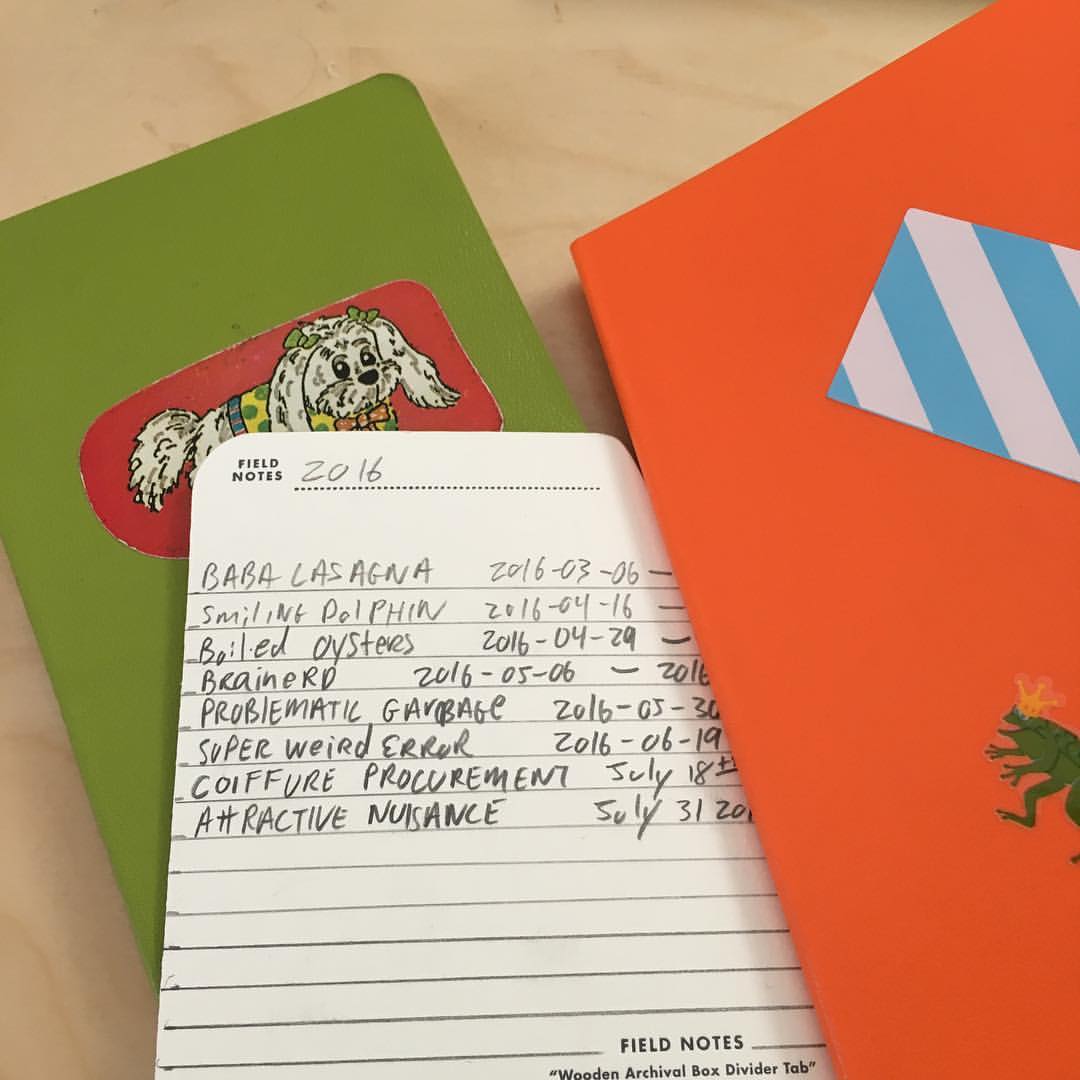 FIELD NOTES 2016
BABA LASAGNA 2016-03-06 —
Smiling Dolphin 2016-04-16 —
Boiled oysters 2016-04-29 —
BraineRD 2016-05-06 — 2016
PROBLEMATIC GARBAGe 2016-05-30
SUPER weird ERROR 2016-06-19
COIFFURE PROCUREMENT July 18th
ATTRACTIVE NUISANCE July 31 201
FIELD NOTES
"Wooden Archival Box Divider Tab"